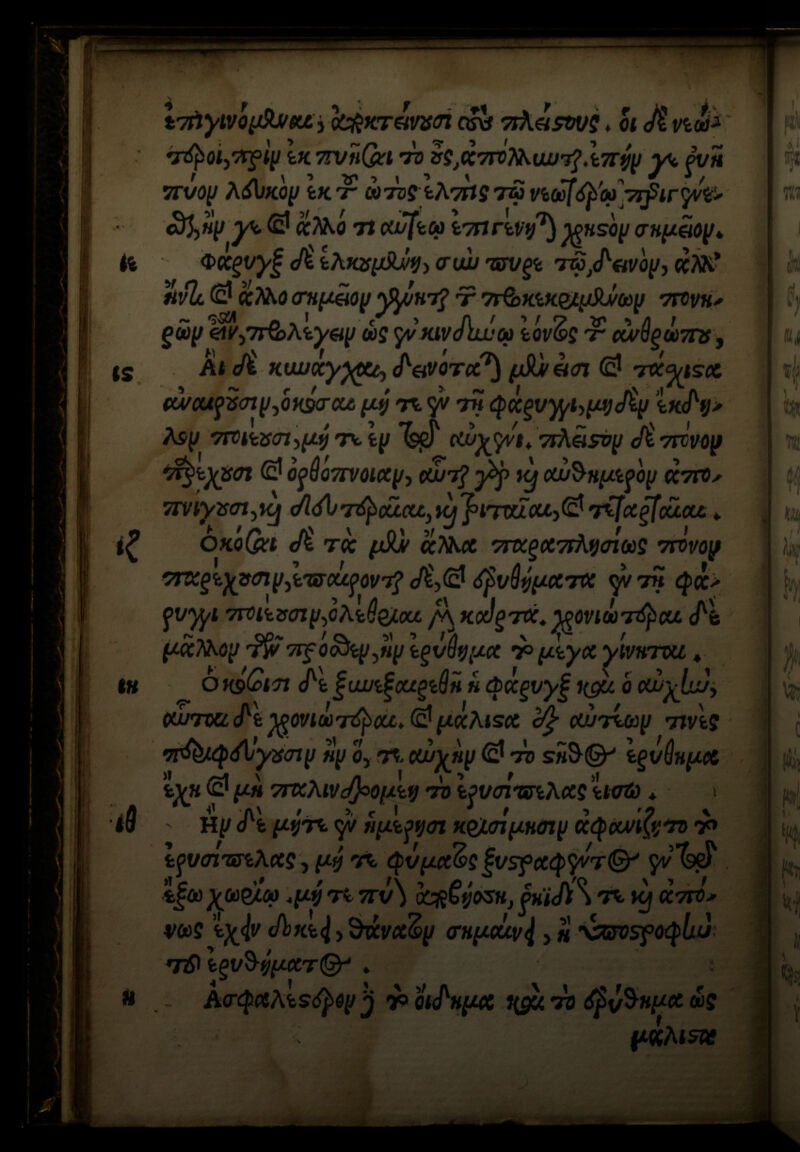 ἐπιγινόμεναι, ἀποκτείνουσι τοὺς πλείστους. οἱ δὲ νεώ-
τεροι, πρὶν ἐκπυῆσαι τὸ οὖς, ἀπόλλυνται. ἐπὴν γε ῥυῆ
πύον λευκὸν ἐκ τοῦ ὠτὸς ἐλπὶς τῷ νεωτέρῳ περιγενέ-
σθαι, ἢν γε καὶ ἄλλό τι αὐτέῳ ἐπιγένηται χρηστὸν σημεῖον.
ιε Φάρυγξ δὲ ἑλκουμένη, σὺν πυρετῷ, δεινὸν, ἀλλ'
ἤν τι καὶ ἄλλο σημεῖον γένηται τῶν προκεκριμένων πονη-
ρῶν εἶναι, προλέγειν ὡς ἐν κινδύνῳ ἐόντος τοῦ ἀνθρώπου,
ις Αἱ δὲ κυνάγχαι, δεινόταται μέν εἰσι καὶ τάχιστα
ἀναιροῦσιν, ὁκόσαι μή τε ἐν τῇ φάρυγγι, μηδὲν ἔκδη-
λον ποιέουσι, μή τε ἐν τῷ αὐχένι, πλεῖστον δὲ πόνον
παρέχουσι καὶ ὀρθόπνοιαν, αὗται γὰρ καὶ αὐθημερὸν ἀπο-
πνίγουσι, καὶ δευτεραῖαι, καὶ τριταῖαι, καὶ τεταρταῖαι.
ιζ Ὁκόσαι δὲ τὰ μὲν ἄλλα παραπλησίως πόνον
παρέχουσιν, ἐπαίρονται δὲ, καὶ ἐρυθήματα ἐν τῇ φά-
ρυγγι ποιέουσιν, ὀλέθριαι μὲν κάρτα. χρονιώτεραι δὲ
μᾶλλον τῶν πρόσθεν, ἢν ἐρύθημα τὸ μέγα γίνηται.
ιη Ὁκόσοισι δὲ ξυνεξαιρεθῆ ἡ φάρυγξ καὶ ὁ αὐχὴν,
αὗται δὲ χρονιώτεραι. καὶ μάλιστα ἐξ αὐτέων τινὲς
περιφεύγουσιν ἢν ὅ, τε αὐχὴν καὶ τὸ στῆθος ἐρύθημα
ἔχῃ καὶ μὴ παλινδρομέῃ τὸ ἐρυσίπελας εἴσω.
ιθ Ἢν δὲ μήτε ἐν ἡμέρῃσι κρισίμῃσιν ἀφανίζηται τὸ
ἐρυσίπελας, μή τε φύματος ξυστραφέντος ἐν τῷ
ἔξω χωρίῳ. μή τε πύον ἀποβήσσῃ, ῥηϊδίως τε καὶ ἀπό-
νως ἔχειν δοκέει, θάνατον σημαίνει, ἢ ὑποστροφὴν
τοῦ ἐρυθήματος.
κ Ἀσφαλέστερον δὲ τὸ οἴδημα καὶ τὸ ἐρύθημα ὡς
μάλιστα